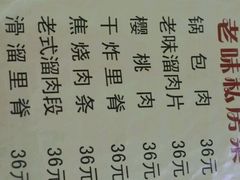 老味私房菜
锅包肉 36元
老味溜肉片 36元
樱桃肉 36元
干炸里脊 36元
焦烧肉条 36元
老式溜肉段 36元
滑溜里脊 36元